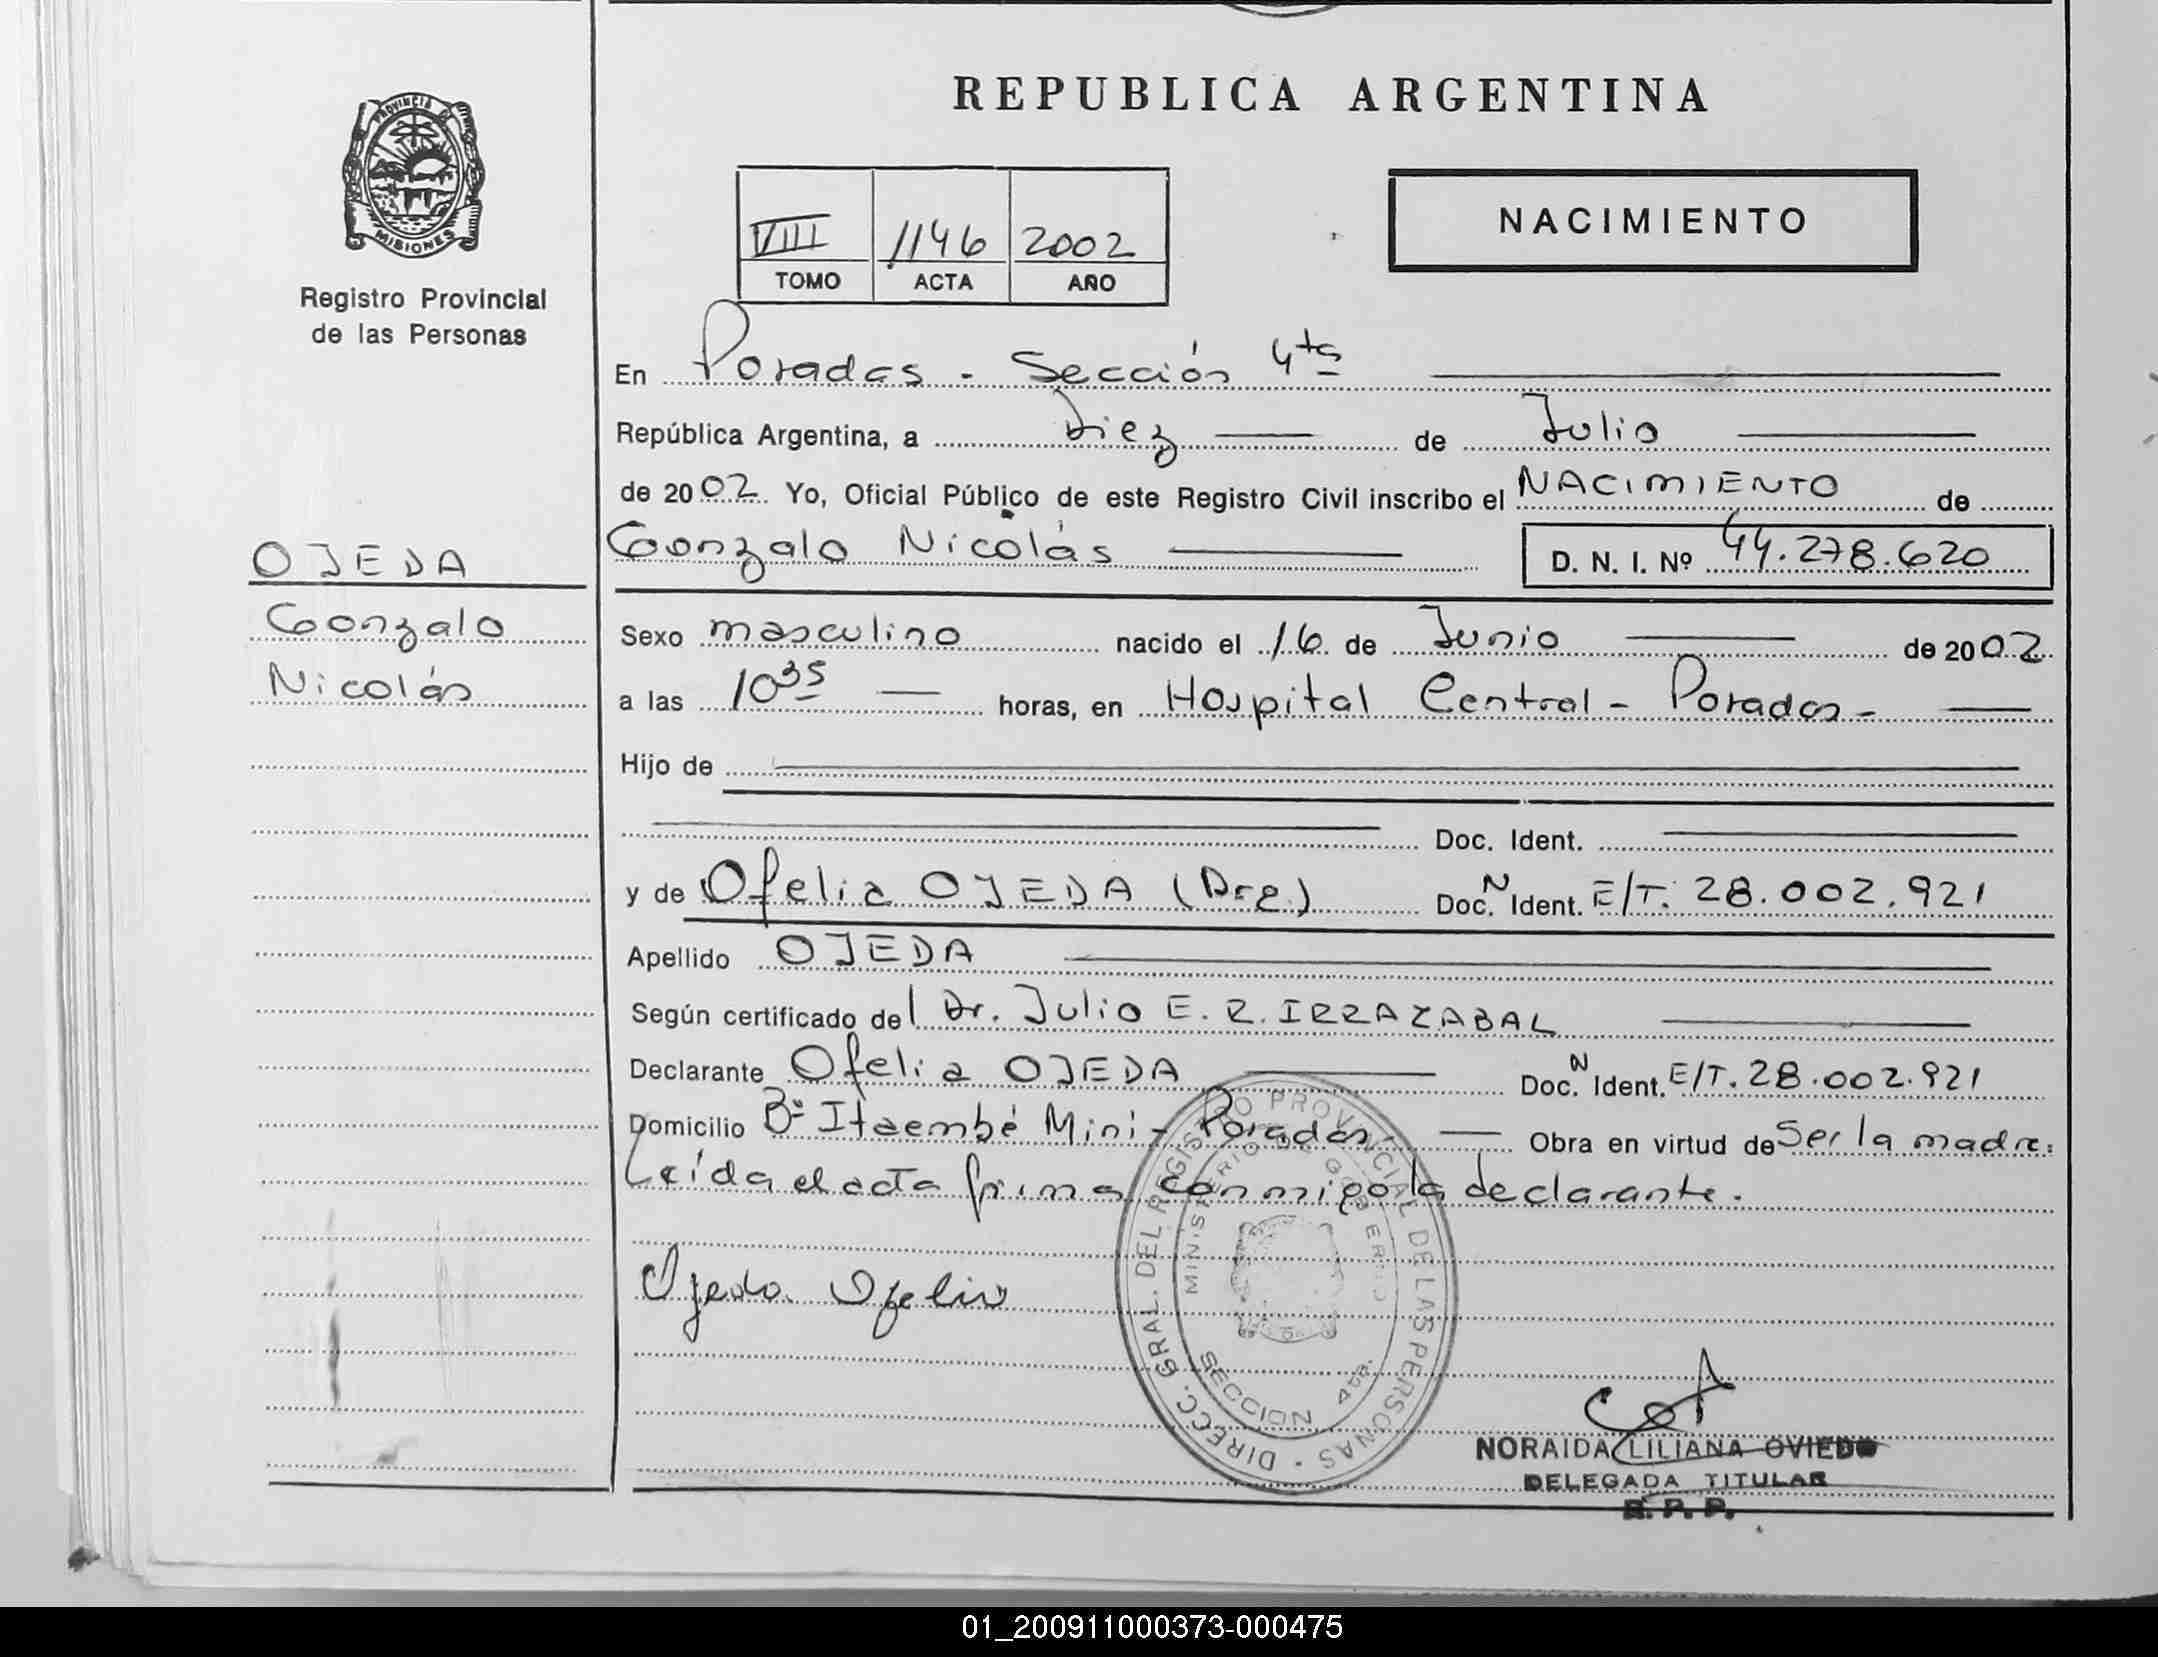 REPUBLICA ARGENTINA
PROVINCIA DE
MISIONES
Registro Provincial
de las Personas
VIII 1146 2002
TOMO ACTA AÑO
NACIMIENTO
En Posadas - Sección 4ta
República Argentina, a Diez de Julio
de 2002 Yo, Oficial Público de este Registro Civil inscribo el NACIMIENTO de
Gonzalo Nicolás
D. N. I. Nº 44.278.620
OJEDA
Gonzalo
Nicolás
Sexo masculino nacido el 16 de Junio de 2002
a las 10 35 horas, en Hospital Central - Posadas -
Hijo de
Doc. Ident.
y de Ofelia OJEDA (Arg.) Doc. N Ident. E/T. 28.002.921
Apellido OJEDA
Según certificado del Dr. Julio E. R. IRRAZABAL
Declarante Ofelia OJEDA Doc. N Ident. E/T. 28.002.921
Domicilio Bº Itaembé Mini - Posadas - Obra en virtud de Ser la madre.
Leída el acta firma conmigo la declarante.
Ojeda Ofelia
DIRECC. GRAL. DEL REGISTRO PROVINCIAL DE LAS PERSONAS
MINISTERIO DE GOBIERNO
SECCION 4ta.
NORAIDA LILIANA OVIEDO
DELEGADA TITULAR
R. P. P.
01_200911000373-000475